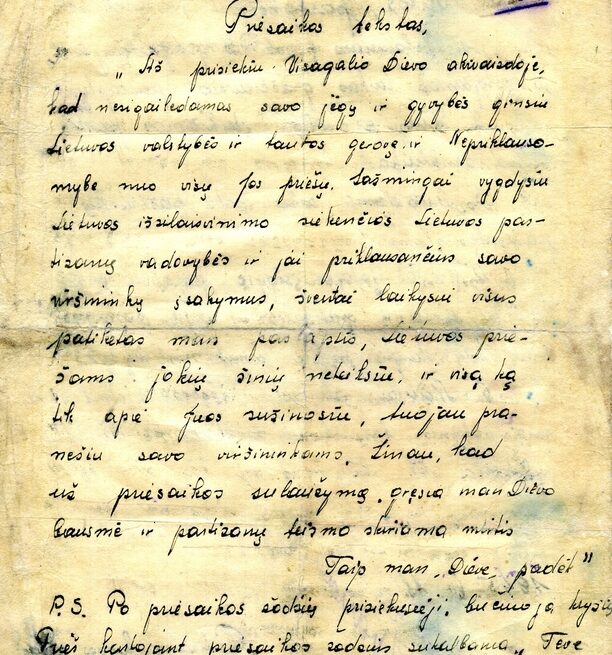 Priesaikos tekstas,
„Aš prisiekiu Visagalio Dievo akivaizdoje,
kad nesigailėdamas savo jėgų ir gyvybės ginsiu
Lietuvos valstybės ir tautos gerovę ir Nepriklauso-
mybę nuo visų jos priešų. Sąžmingai vygdysiu
Lietuvos išsilaisvinimo siekenčios Lietuvos par-
tizanų vadovybės ir jai priklausančius savo
viršininkų įsakymus, šventai laikysiu visus
patikėtas man paslaptis, Lietuvos prie-
šams jokių žinių neteiksiu, ir visą ką
tik apie juos sužinosiu, tuojau pra-
nešiu savo viršininkams. Žinau, kad
už priesaikos sulaužymą gręsia man Dievo
bausmė ir partizanų teismo skiriama mirtis
Taip man „Dieve padėt"
P.S. Po priesaikos žodžių prisiekusieji bučiuoja kryžių
Prieš kartojant priesaikos žodžius sukalbama „Tėve